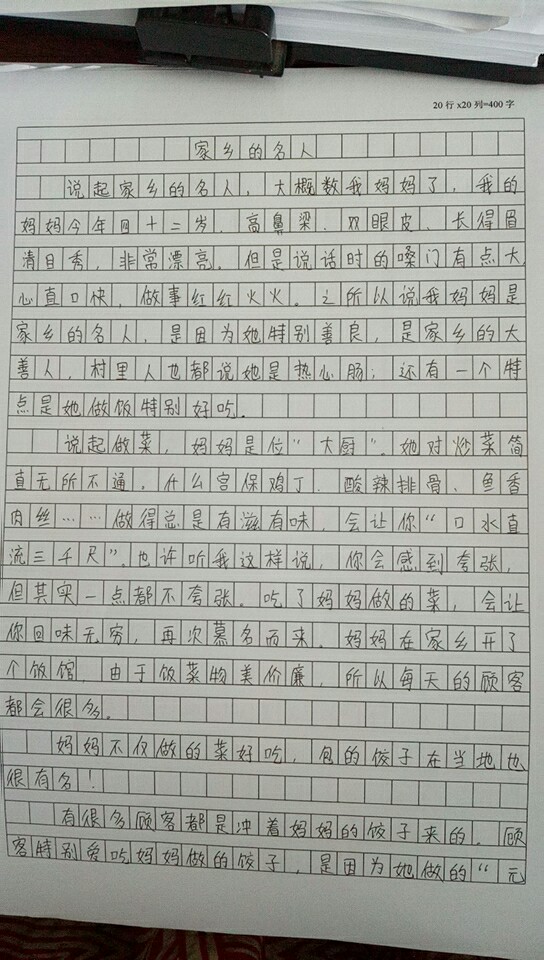 20 行 x20 列=400 字
家乡的名人
说起家乡的名人，大概数我妈妈了，我的
妈妈今年四十二岁，高鼻梁、双眼皮、长得眉
清目秀，非常漂亮，但是说话时的嗓门有点大，
心直口快，做事红红火火。之所以说我妈妈是
家乡的名人，是因为她特别善良，是家乡的大
善人，村里人也都说她是热心肠；还有一个特
点是她做饭特别好吃。
说起做菜，妈妈是位“大厨”。她对炒菜简
直无所不通。什么宫保鸡丁、酸辣排骨、鱼香
肉丝……做得总是有滋有味，会让你“口水直
流三千尺”。也许听我这样说，你会感到夸张，
但其实一点都不夸张。吃了妈妈做的菜，会让
你回味无穷，再次慕名而来。妈妈在家乡开了
个饭馆，由于饭菜物美价廉，所以每天的顾客
都会很多。
妈妈不仅做的菜好吃，包的饺子在当地也
很有名！
有很多顾客都是冲着妈妈的饺子来的。顾
客特别爱吃妈妈做的饺子，是因为她做的“元